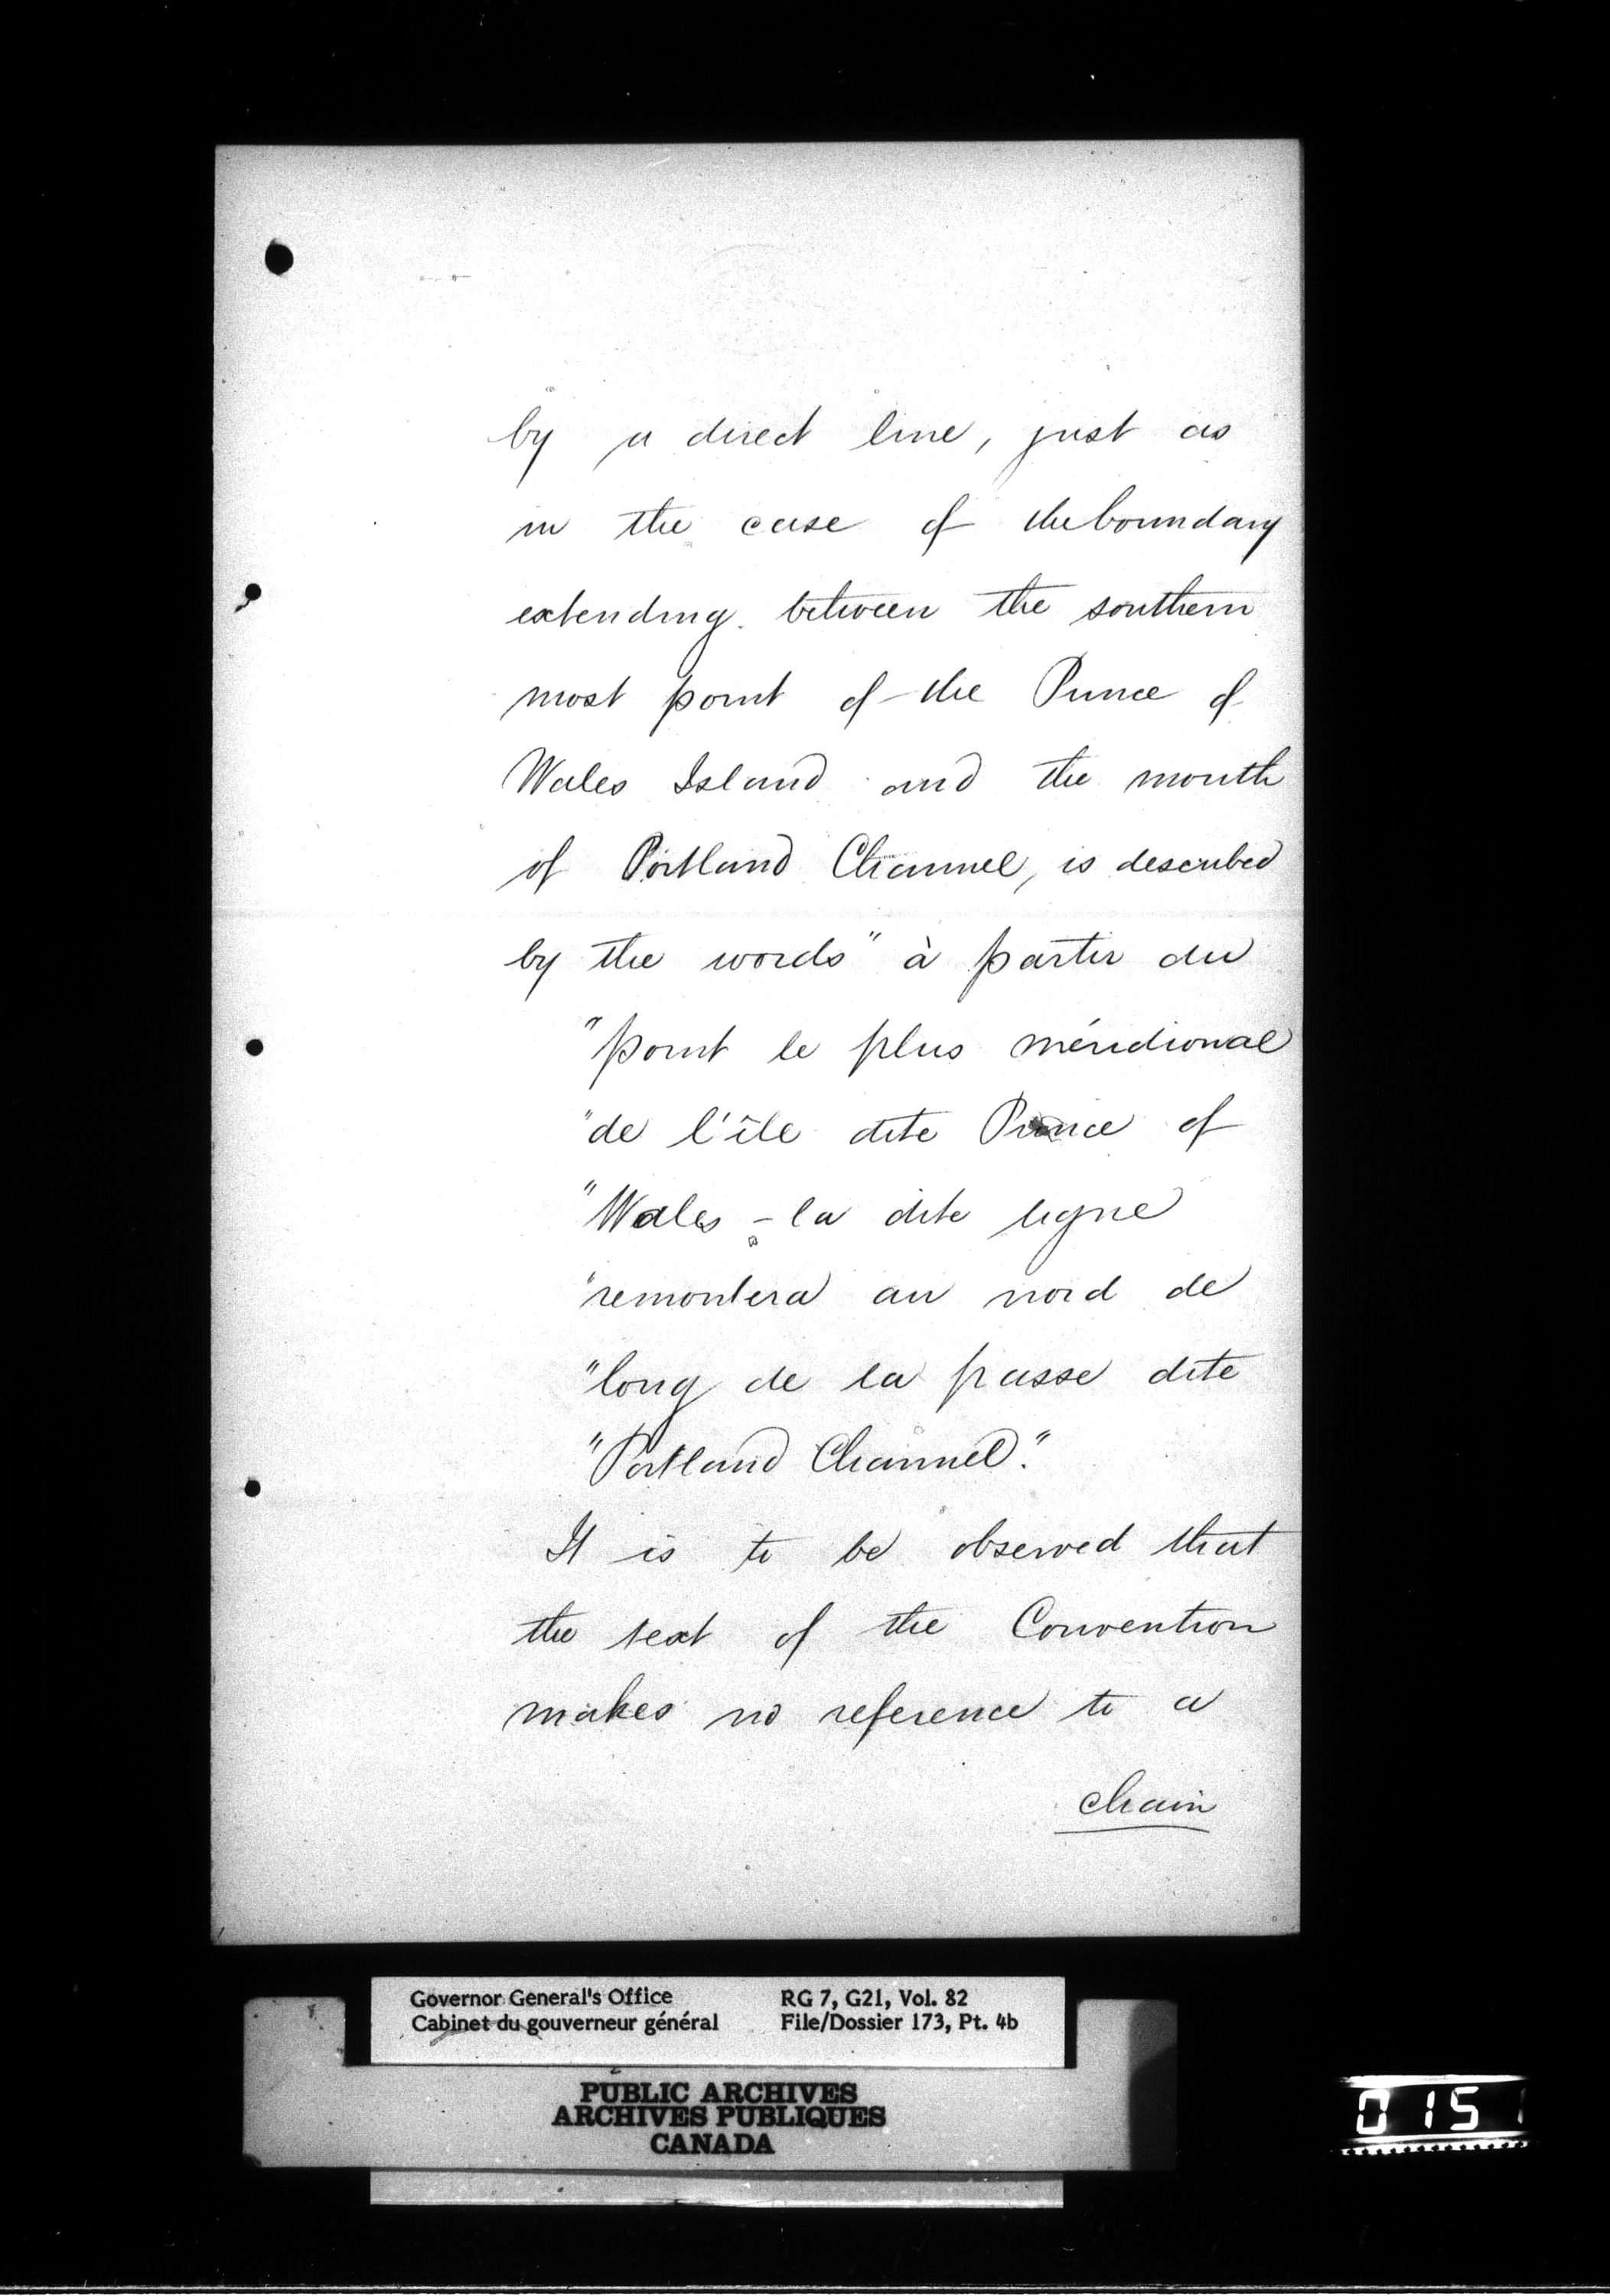 by a direct line, just as
in the case of the boundary
extending between the southern
most point of the Prince of
Wales Island and the mouth
of Portland Channel, is described
by the words "à partir du
"point le plus méridional
"de l'île dite Prince of
"Wales - la dite ligne
"remontera au nord de
"long de la passe dite
"Portland Channel."
It is to be observed that
the text of the Convention
makes no reference to a
chain
Governor General's Office RG 7, G21, Vol. 82
Cabinet du gouverneur général File/Dossier 173, Pt. 4b
PUBLIC ARCHIVES
ARCHIVES PUBLIQUES
CANADA
015